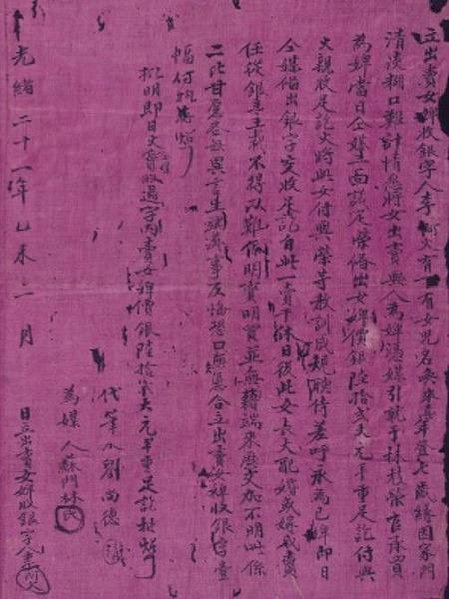 立出賣女婢收銀字人李阿文有一有女兒名喚來喜年登七歲緣因家門
清淡糊口難計情愿將女出賣與人為婢憑媒引就于林彩榮官承買
為婢當日仝媒三面議定榮備出女婢價銀陸拾弍大元平重足訖付與
文親收足訖文將與女付與榮等教訓成規聽侍差呼承為己婢即日
仝媒備出銀字交收足訖自此一賣千休日後此女長大配婚或嫁或賣
任從銀主主裁不得以難係明賣明買並無藉端來歷交加不明此係
二比甘愿各無異言生端滋事反悔恐口無憑合立出賣女婢收銀字壹
幅付執為炤
批明即日文實收過字內賣女婢價銀陸拾弍大元平重足訖批炤
代筆人劉尚德
為媒人蘇門林氏
光緒二十一年乙未二月
日立出賣女婢收銀字人李阿文